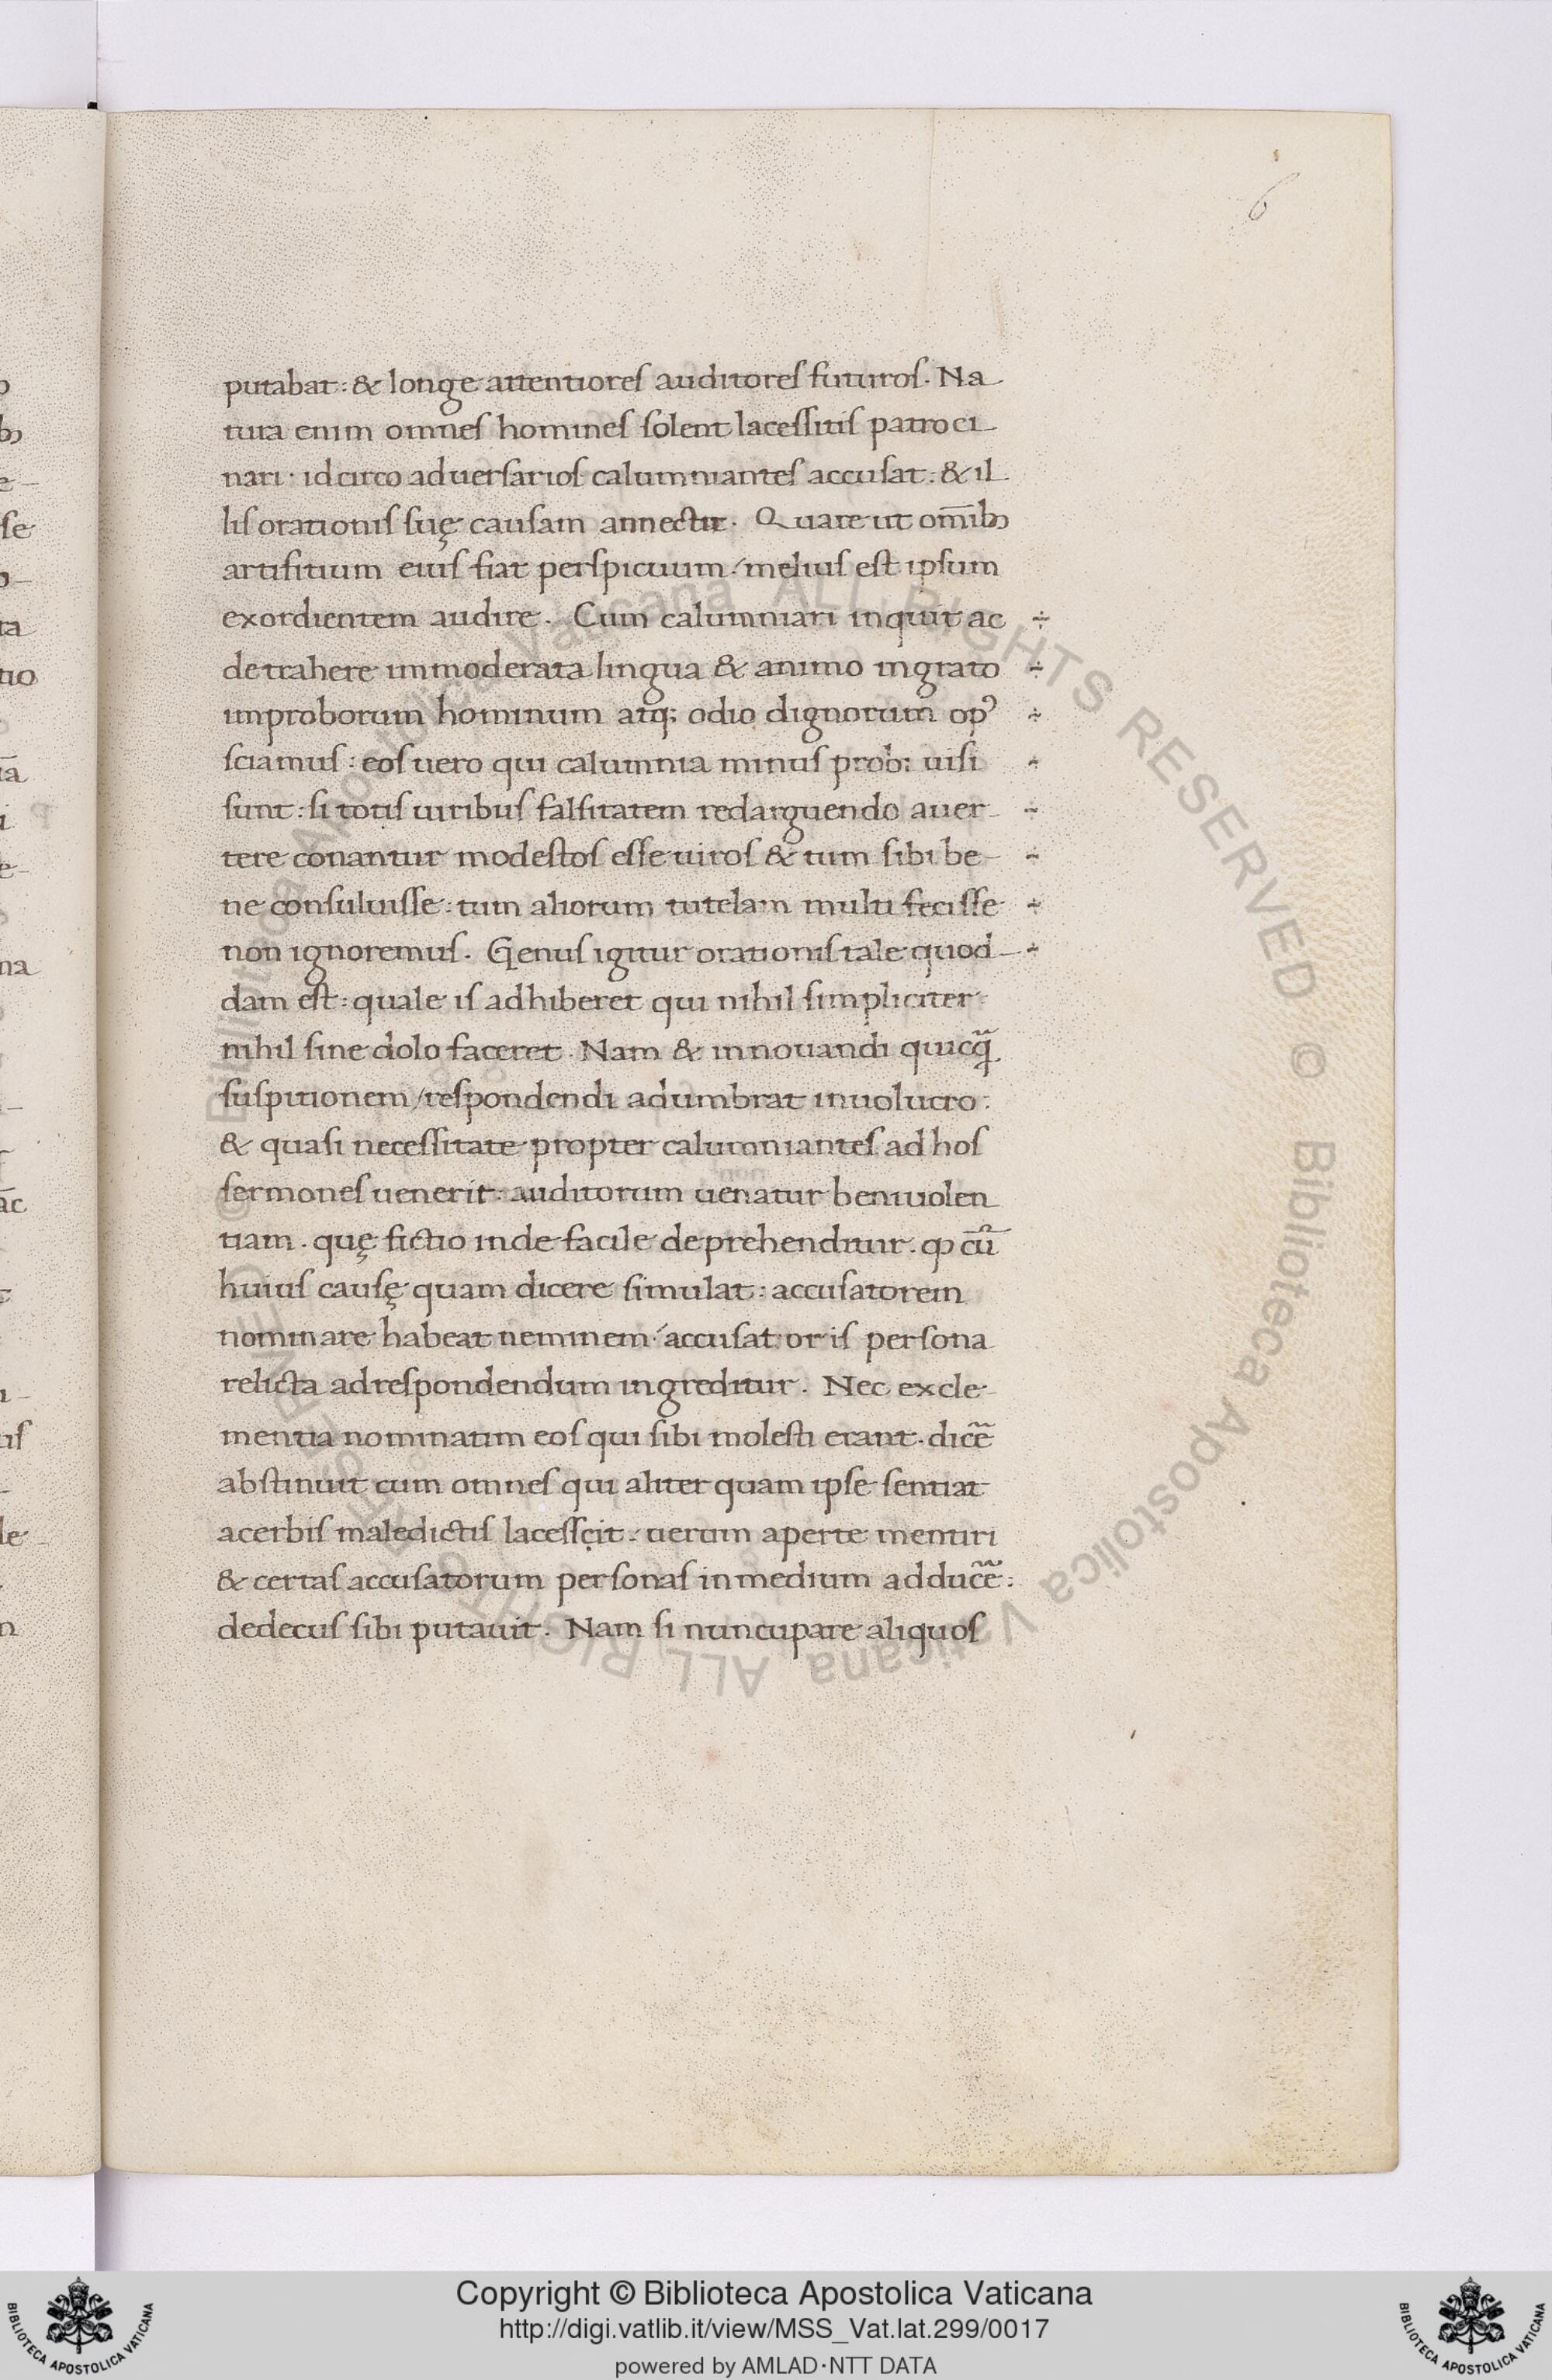 6
putabat: & longe attentioreſ auditoreſ futuroſ. Na
tura enim omneſ homineſ ſolent laceſſitiſ patroci
nari· idcirco aduerſarioſ calumnianteſ accuſat: & il
liſ orationiſ ſuę cauſam annectit. Quare ut om̅ib;
artifitium eiuſ fiat perſpicuum / meliuſ eſt ipſum
exordientem audire. Cum calumniari inquit ac ÷
detrahere immoderata lingua & animo ingrato ÷
improborum hominum atq; odio dignorum opꝰ ÷
ſciamuſ: eoſ uero qui calumnia minuſ probi uiſi ÷
ſunt: ſi totiſ uiribuſ falſitatem redarguendo auer- ÷
tere conantur modeſtoſ eſſe uiroſ & tum ſibi be- ÷
ne conſuluiſſe: tum aliorum tutelam multi feciſſe ÷
non ignoremuſ. Genuſ igitur orationiſ tale quod- ÷
dam eſt: quale iſ adhiberet qui nihil ſimpliciter:
nihil ſine dolo faceret. Nam & innouandi quicq̃
ſuſpitionem / reſpondendi adumbrat inuolucro:
& quaſi neceſſitate propter calumnianteſ ad hoſ
ſermoneſ uenerit: auditorum uenatur beniuolen
tiam. quę fictio inde facile deprehenditur. ꝙ cu̅
huiuſ cauſę quam dicere ſimulat: accuſatorem
nominare habeat neminem / accuſatoriſ perſona
relicta ad reſpondendum ingreditur. Nec ex cle-
mentia nominatim eoſ qui ſibi moleſti erant. dicẽ
abſtinuit cum omneſ qui aliter quam ipſe ſentiat
acerbiſ maledictiſ laceſſcit: uerum aperte mentiri
& certaſ accuſatorum perſonaſ in medium adducẽ:
dedecuſ ſibi putauit. Nam ſi nuncupare aliquoſ
Copyright © Biblioteca Apostolica Vaticana
http://digi.vatlib.it/view/MSS_Vat.lat.299/0017
powered by AMLAD·NTT DATA